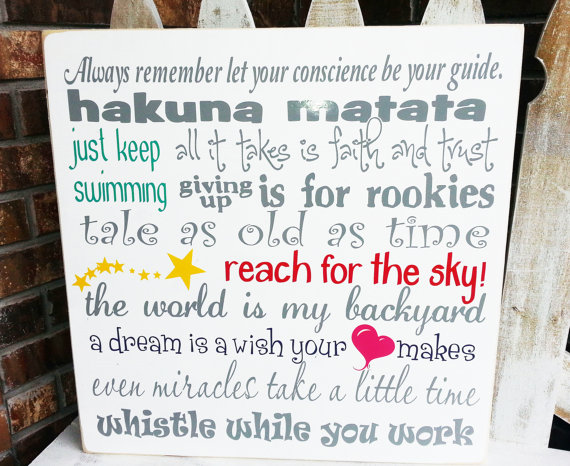 Always remember let your conscience be your guide.
hakuna matata
just keep swimming
all it takes is faith and trust
giving up is for rookies
tale as old as time
reach for the sky!
the world is my backyard
a dream is a wish your makes
even miracles take a little time
whistle while you work